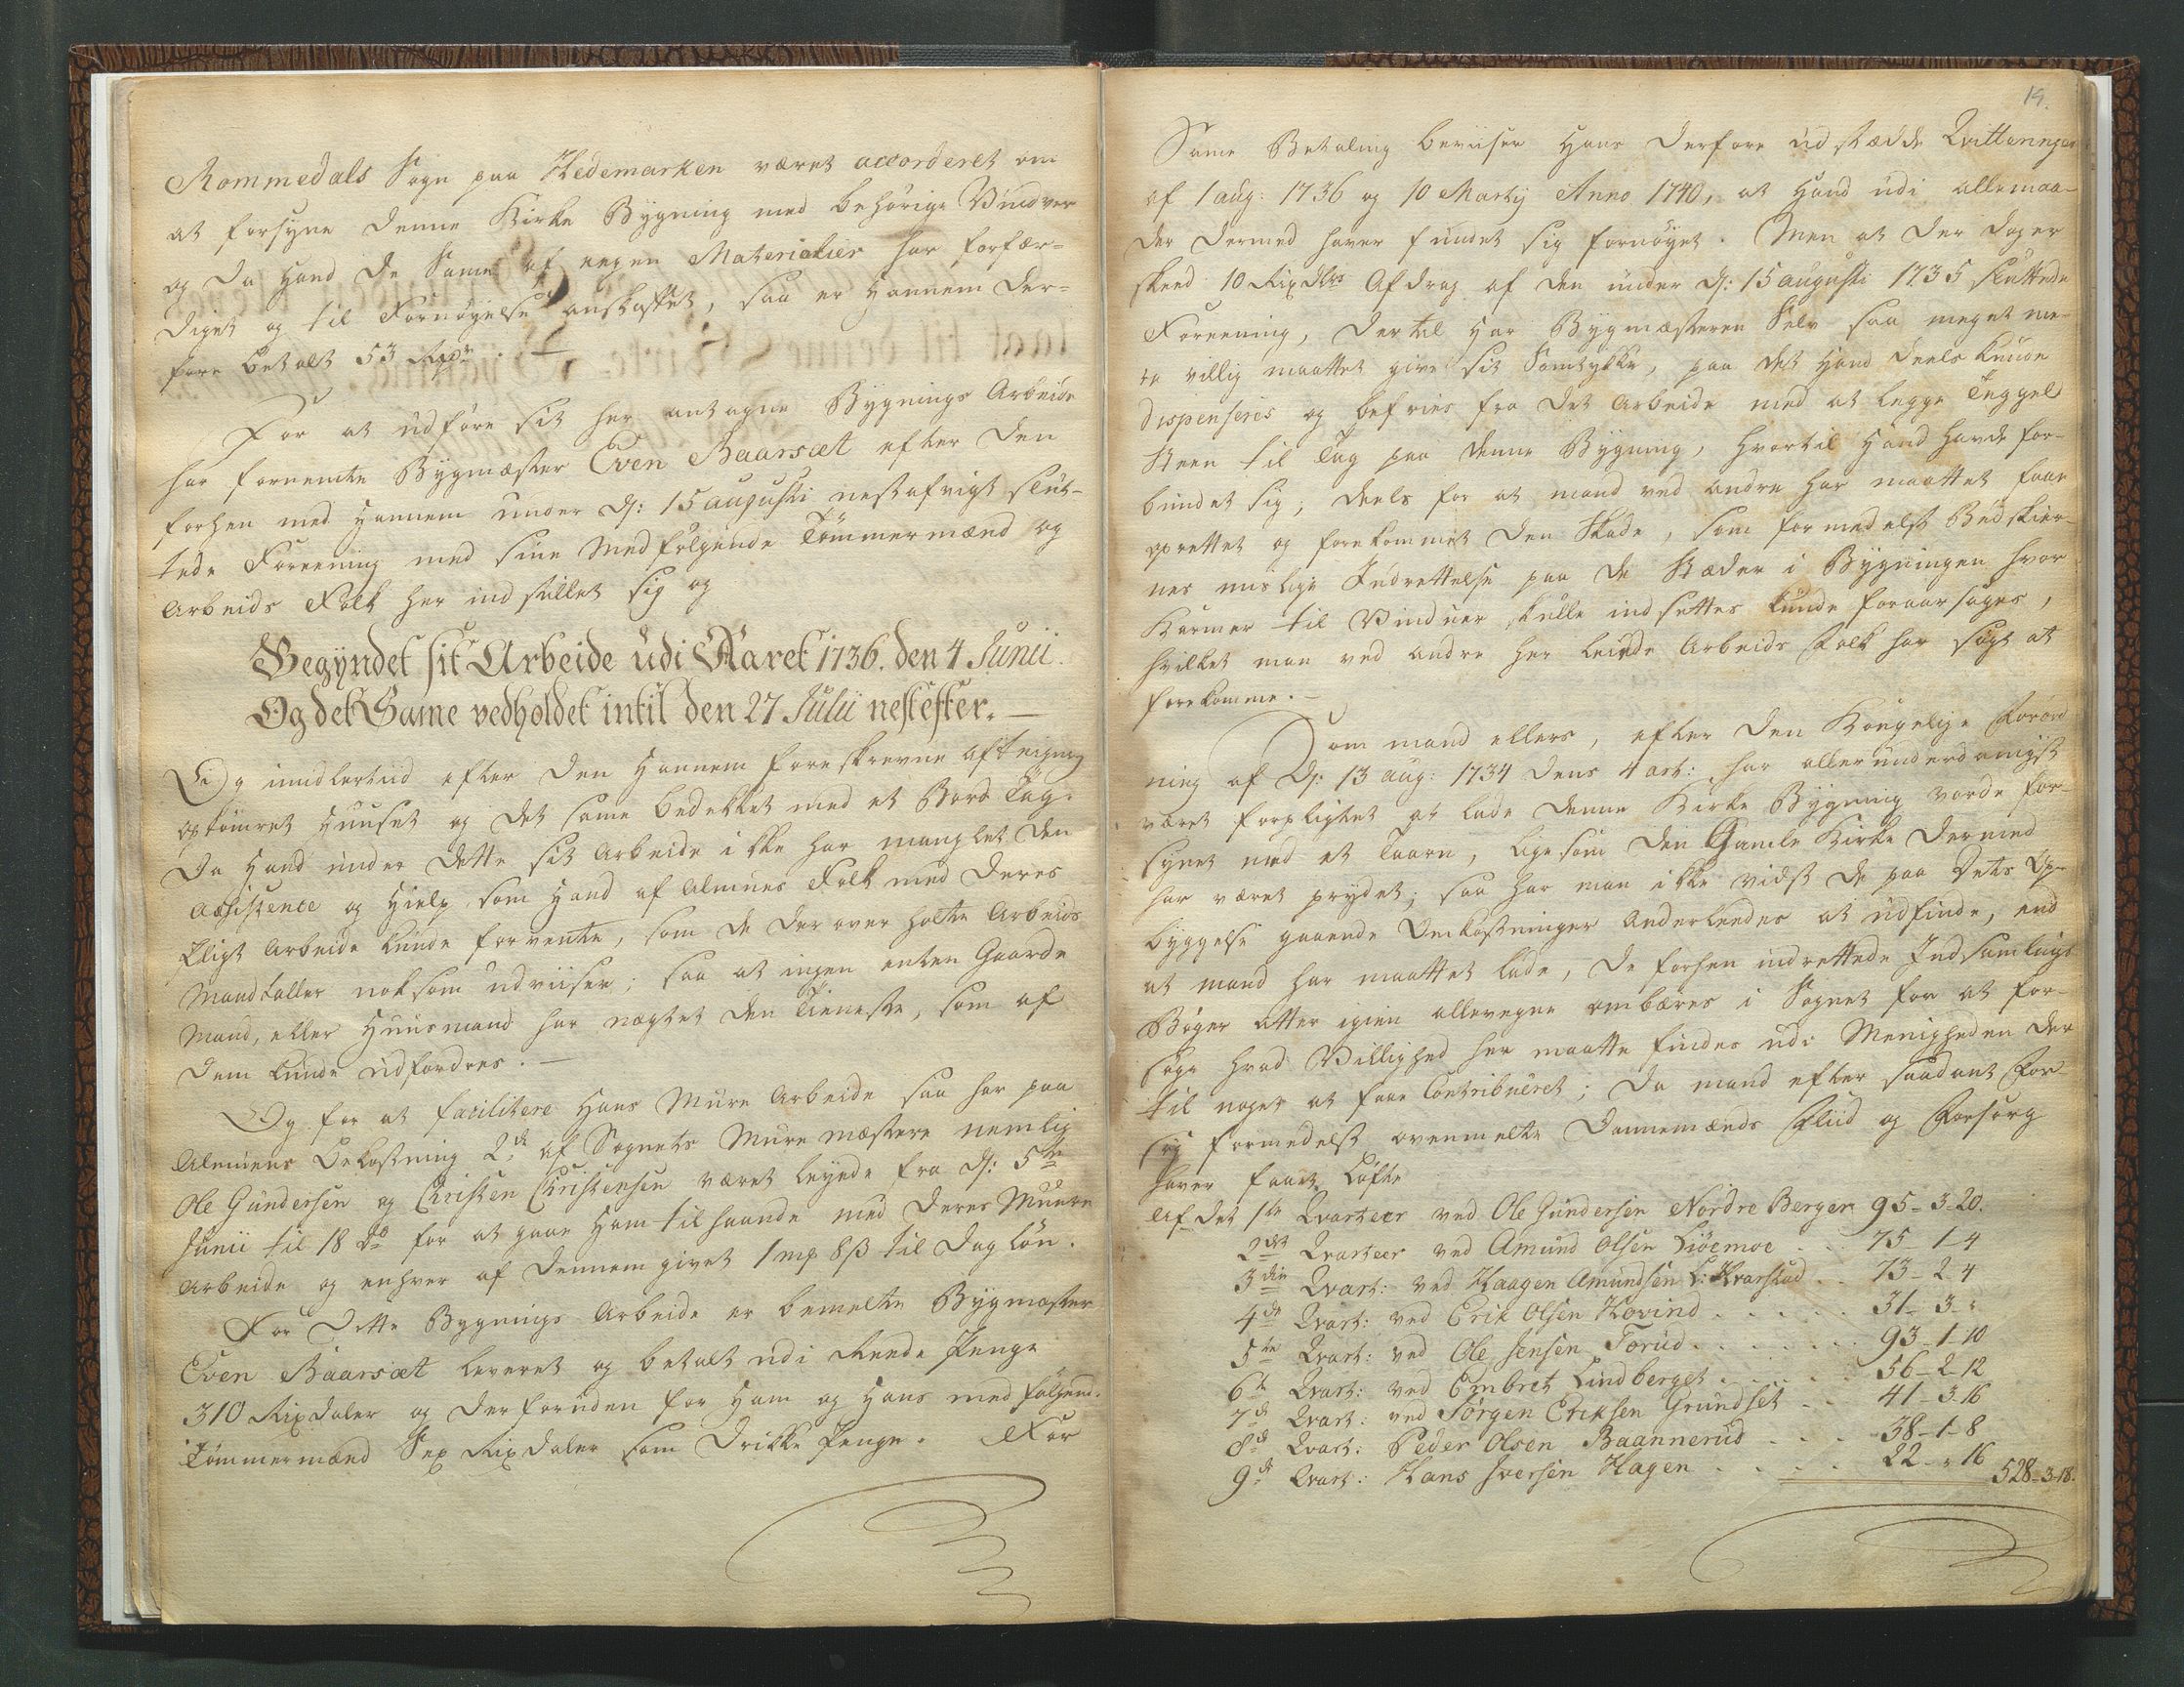 Rommedals Sogn paa Hedemarken været accorderet om
at forsyne denne Kirke Bygning med behørige Vindver
og da hand de Same af egen Materialier har forfær-
diget og til Fornøyelse anskaffet, saa er hannem der-
fore betalt 53 Rixdr. –
For at udføre sit her antagne Bygnings Arbeide
har fornemte Bygmæster Even Baarsæt efter den
forhen med hannem under d: 15 augusti nestafvigt slut-
tede Foreening med sine medfølgende Tømmermænd og
Arbeids Folk her indstillet sig og
Begyndet sit Arbeide udi Aaret 1736. den 4 Junii.
Og det Same vedholdet intil den 27 Julii nestefter. –
Og imidlertiid efter den hannem foreskrevne aftegning
optømret huuset og det same bedekket med et Bord Tag.
Da hand under dette sit Arbeide ikke har manglet den
Assistence og Hielp som hand af Almues Folk med deres
Pligt Arbeide kunde forvente, som de derover holte Arbeids
Mandtaller noksom udviiser; saa at ingen enten Gaarde
Mand, eller Huusmand har nægtet den Tieneste, som af
dem kunde udfordres. –
Og for at facilitere hans Mure Arbeide saa har paa
Almuens Bekostning 2de af Sognets Mure mæstere nemlig
Ole Gundersen og Christen Christensen været leyede fra d: 5te
Junii til 18 do for at gaae ham tilhaande med deres Muure
Arbeide og enhver af dennem givet 1 mp 8 β til Dag løn.
For dette Bygnings Arbeide er bemelte Bygmæster
Even Baarsæt leveret og betalt udi Reede Penge
310 Rixdaler og derforuden for ham og hans medfølgend.
Tømmermænd Sex Rixdaler som Drikke Penge. For
19.
Same Betaling beviiser hans derfore udstædde Qvittanzer
af 1 aug: 1736 og 10 Martij Anno 1740, at hand udi allemaa-
der dermed haver fundet sig fornøyet. Men at der dog er
skeed 10 Rixdlrs Afdrag af den under d: 15 augusti 1735 sluttede
Foreening, dertil har Bygmæsteren Selv saa meget me-
re villig maattet give sit Samtykke, paa det hand deels kunde
dispenseres og befries fra det Arbeide med at legge Teggel
Steen til Tag paa denne Bygning, hvortil hand havde for-
bundet sig, deels for at mand ved andre har maattet faae
oprettet og forekommet den Skade, som formedelst Bedskier-
nes mislige Indrettelse paa de Stæder i Bygningen hvor
Karmer til Vinduer skulle indsettes kunde foraarsages,
hvilket man ved andre her leiede Arbeids Folk har søgt at
forekomme. –
Som mand ellers, efter den Kongelige Forord
ning af d: 13 aug: 1734 dens 4 art: har allerunderdanigst
været forpligtet at lade denne Kirke Bygning vorde for-
synet med et Taarn, ligesom den Gamle Kirke dermed
har været prydet; saa har man ikke vidst de paa dets Op-
byggelse gaaende Omkostninger anderleedes at udfinde, end
at mand har maattet lade, de forhen indrettede Indsamlings
Bøger atter igien allevegne ombæres i Sognet for at for-
søge hvad Villighed her maatte findes udi Menigheden der
til noget at faae Contribueret; da mand efter saadant For-
søg formedelst ovenmelte Dannemænds Fliid og Forsorg
haver faaet Løfte
Af det 1te Qvarteer ved Ole Gundersen Nordre Bergen 95 - 3 - 20.
2det Qvarteer ved Amund Olsen Liøemoe . . 75 - 1 - 4
3die Qvart: ved Haagen Amundsen L: Kvarstad . . 73 - 2 - 4
4de Qvart: ved Erik Olsen Hovind . . . . . 31 - 3 - "
5te Qvart: ved Ole Jensen Torud . . . . . . . 93 - 1 - 10
6te Qvart: ved Embret Lindberget . . . . . 56 - 2 - 12
7de Qvart: ved Jørgen Eriksen Grundset . . 41 - 3 - 16
8de Qvart: Peder Olsen Baannerud . . . . 38 - 1 - 8
9de Qvart: Hans Iversen Hagen . . . . . 22 - " - 16
528 - 3 - 18.